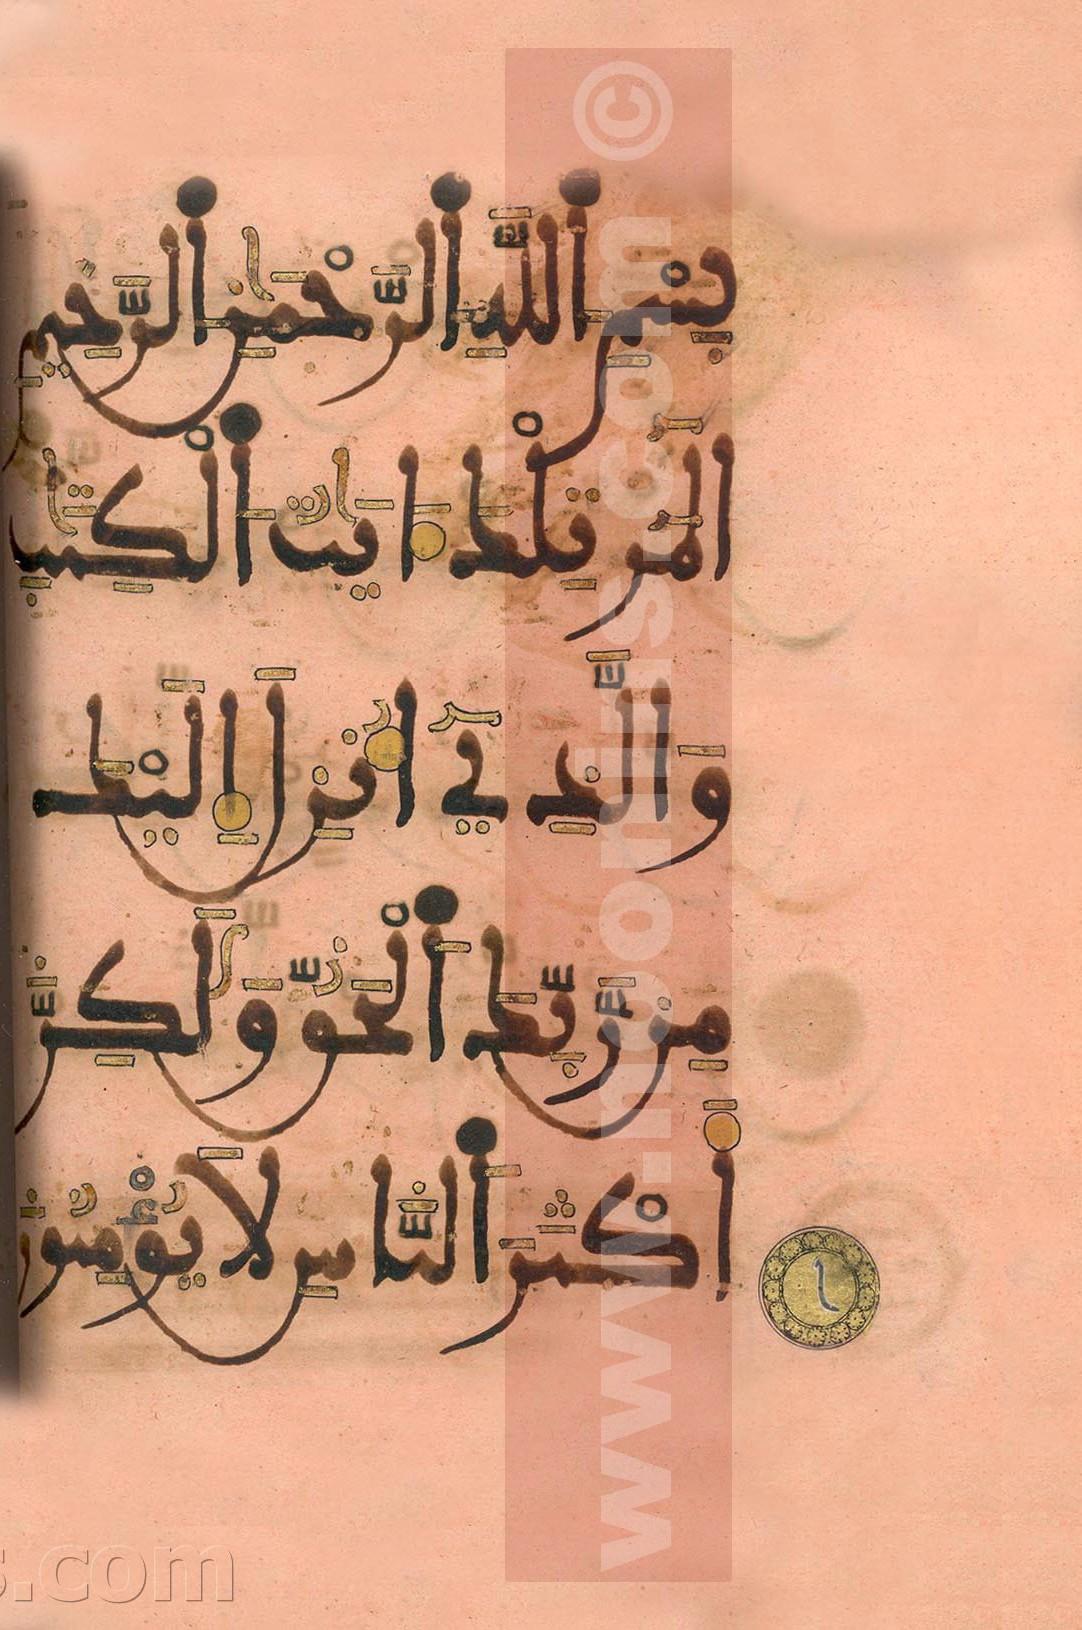 بِسْمِ اللَّهِ الرَّحْمَٰنِ الرَّحِيمِ
الٓمٓر تِلْكَ ءَايَٰتُ الْكِتَٰبِ
وَالَّذِي أُنزِلَ إِلَيْكَ
مِن رَّبِّكَ الْحَقُّ وَلَٰكِنَّ
أَكْثَرَ النَّاسِ لَا يُؤْمِنُونَ
www.ncoonirs.com ©
s.com